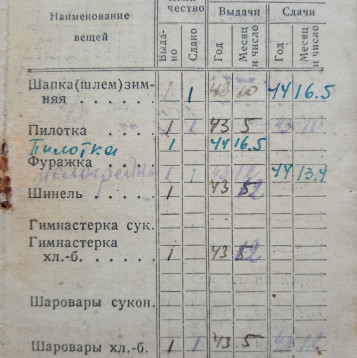 Наименование вещей
чество Выдачи Сдачи
Выдано Сдано Год Месяц и число Год Месяц и число
Шапка (шлем) зим-
няя . . . . . 1 1 43 10 44 16.5
Пилотка . . . . . 1 1 43 5 43 10
Пилотка 1 44 16.5
Фуражка . . . . . 1 1 43 12 44 13.4
Шинель . . . . . 1 43 12
Гимнастерка сук.
Гимнастерка
хл.-б. . . . . . 1 43 12
Шаровары сукон.
Шаровары хл.-б. 1 1 43 5